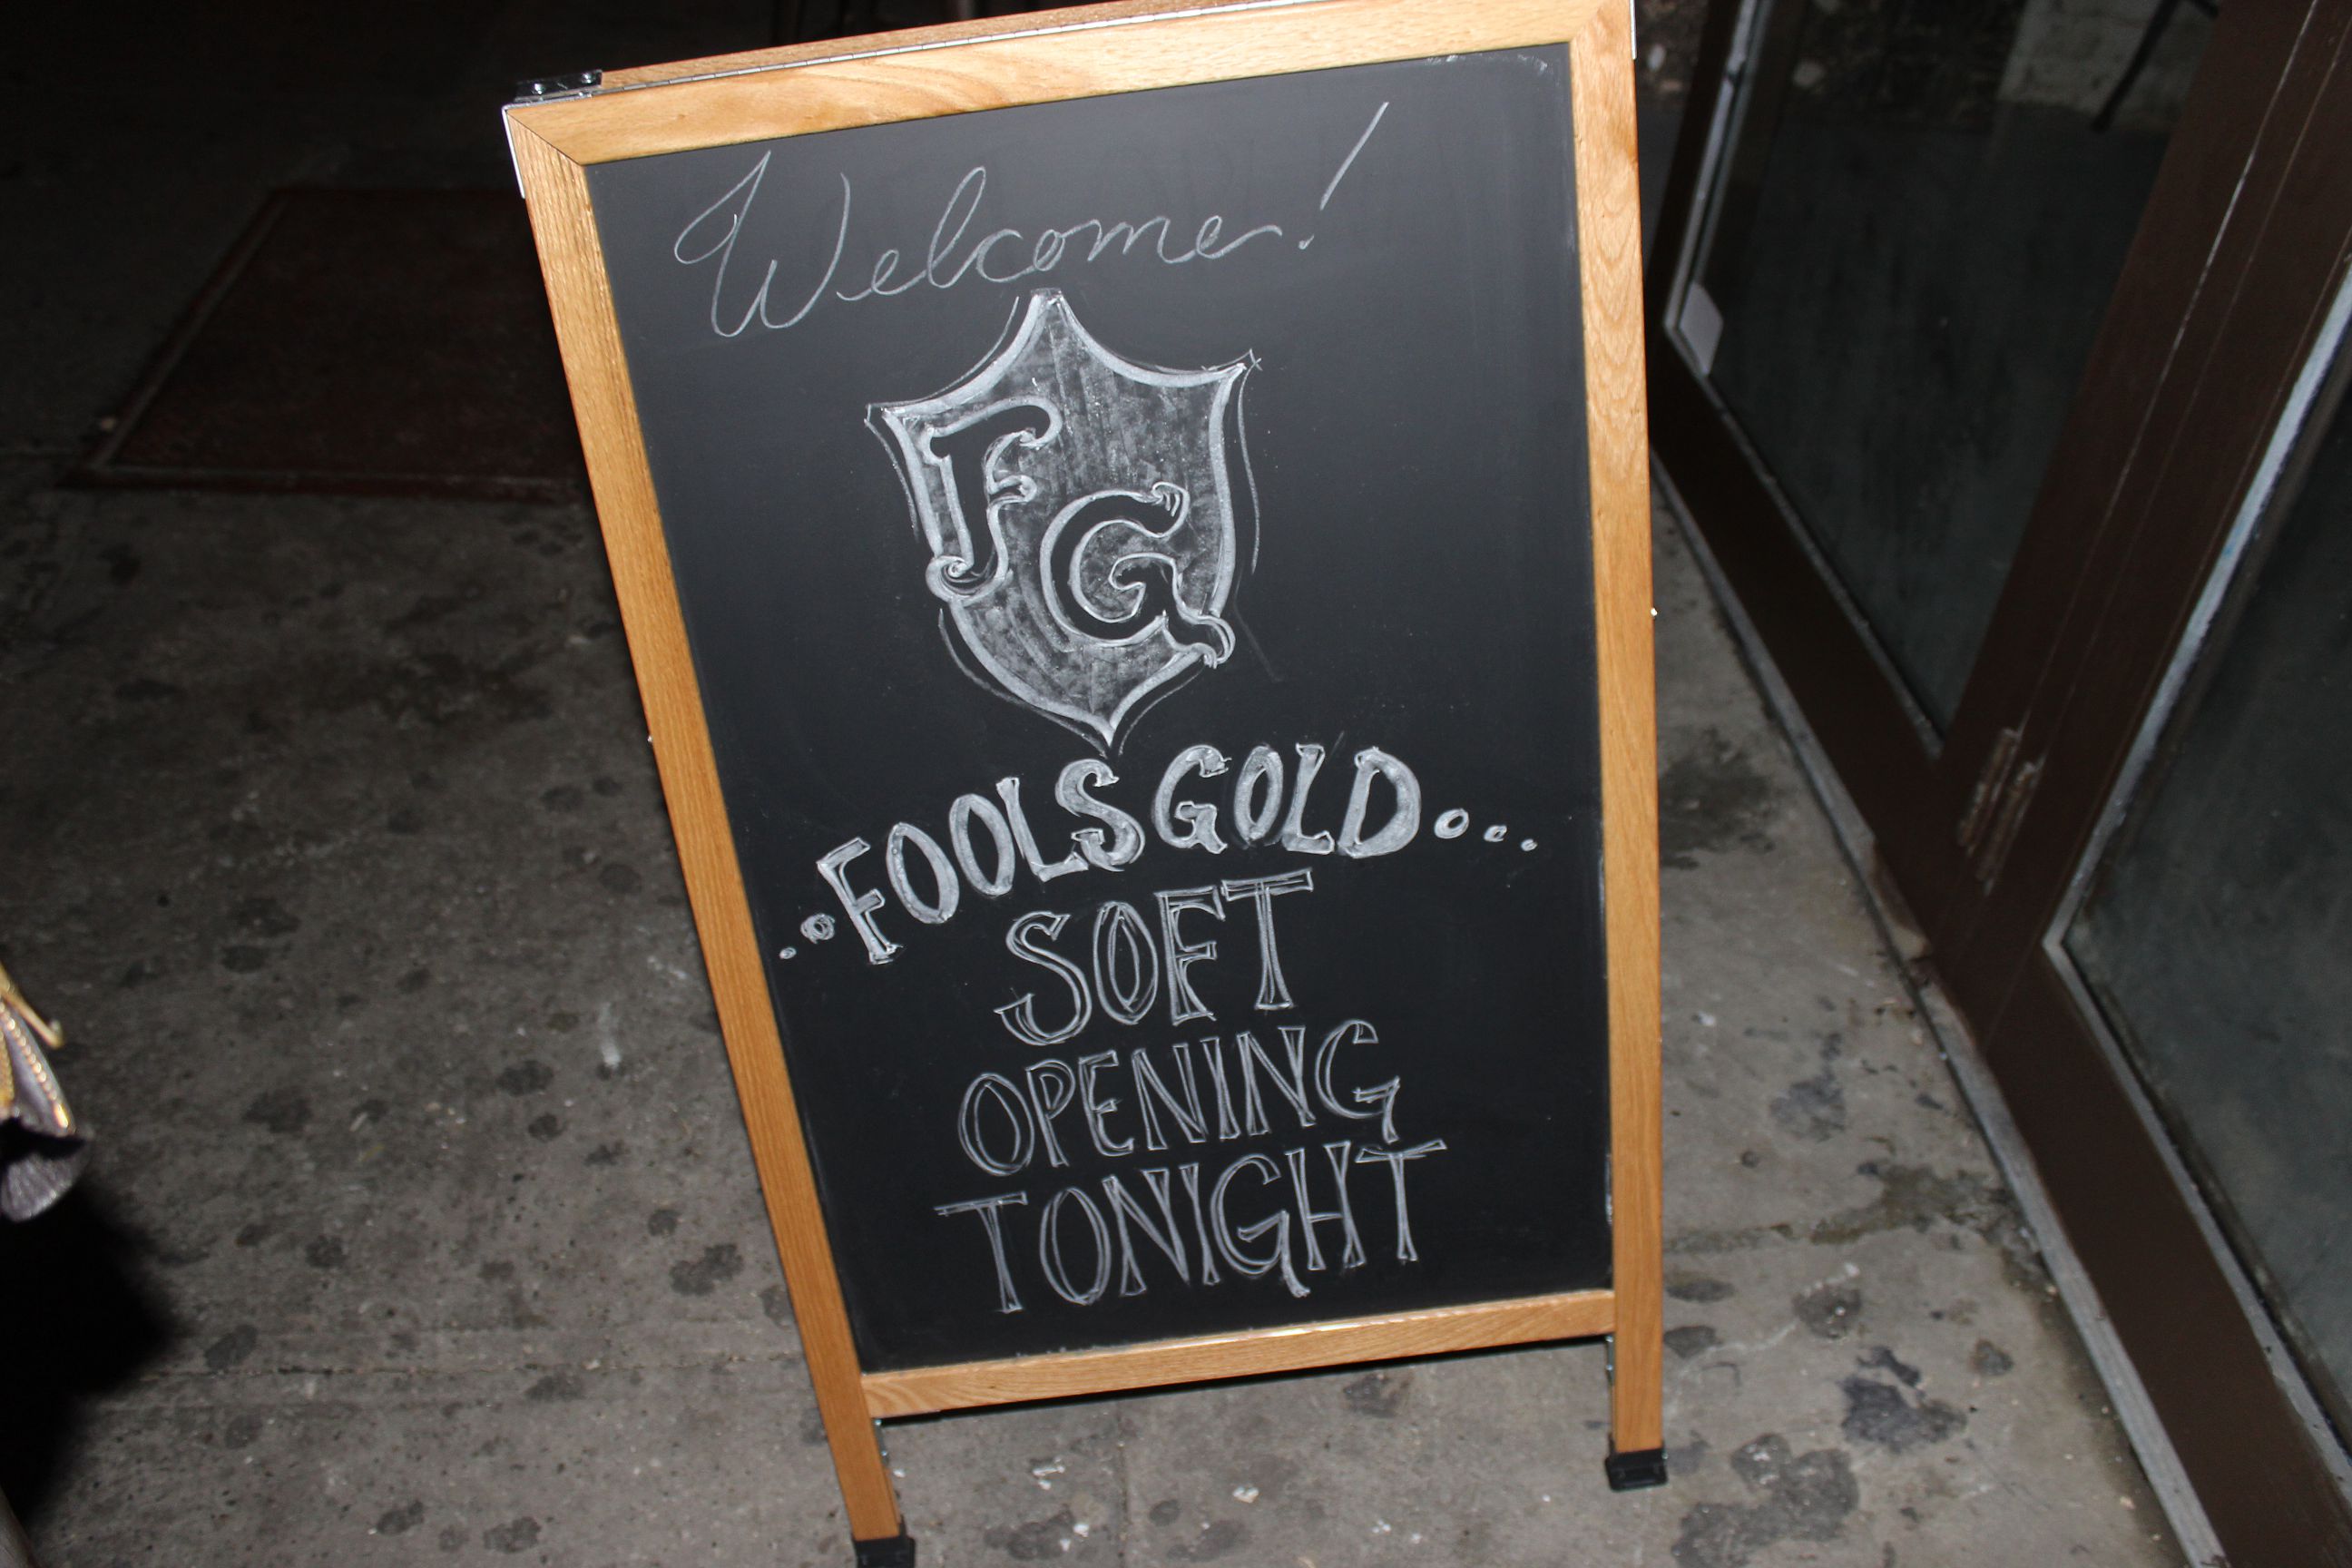 Welcome!
FG
..FOOLS GOLD...
SOFT
OPENING
TONIGHT